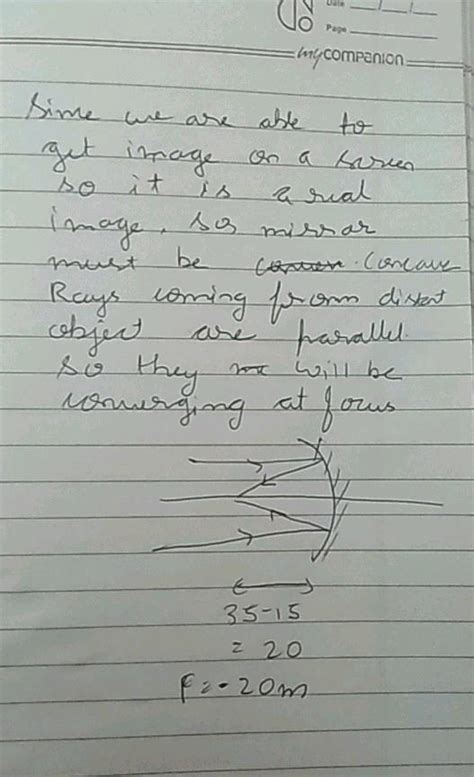 Date
Page
mycompanion
Since we are able to
get image on a screen
so it is a real
image. So mirror
must be concave
Rays coming from distant
object are parallel.
so they will be
converging at focus
35-15
= 20
F = -20m